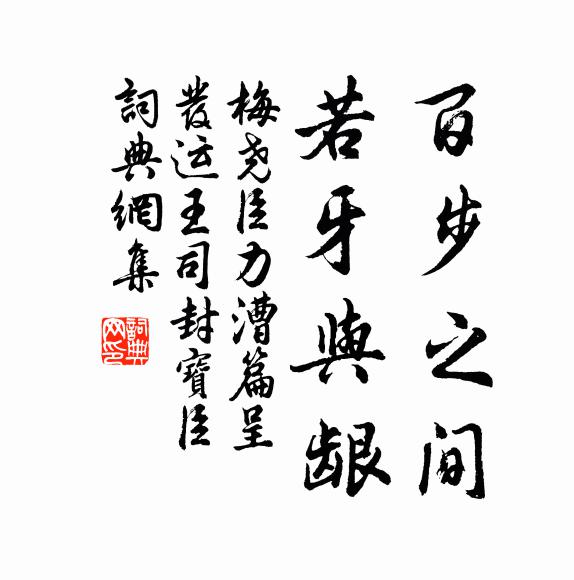 百步之间
若牙與龈
梅堯臣力漕篇呈
發运王司封寶臣
詞典網集
詞典网印